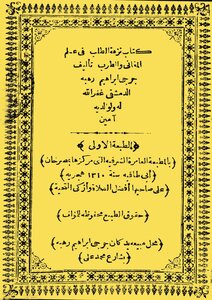 كتاب نزهة الطلاب فى علم
المغانى والطرب تأليف
جرجى ابراهيم رهبه
الدمشقى غفر الله
له ولوالديه
آمين
﴿الطبعة الاولى﴾
(بالمطبعة العامرة الشرفية التى مركزها بمصر خان)
(أبى طاقيه سنة ١٣١٠ هجريه)
(على صاحبها أفضل الصلاة وأزكى التحية)
(حقوق الطبع محفوظه للمؤلف)
(محل مبيعه بدكان جرجى ابراهيم رهبه)
(بشارع محمد على)